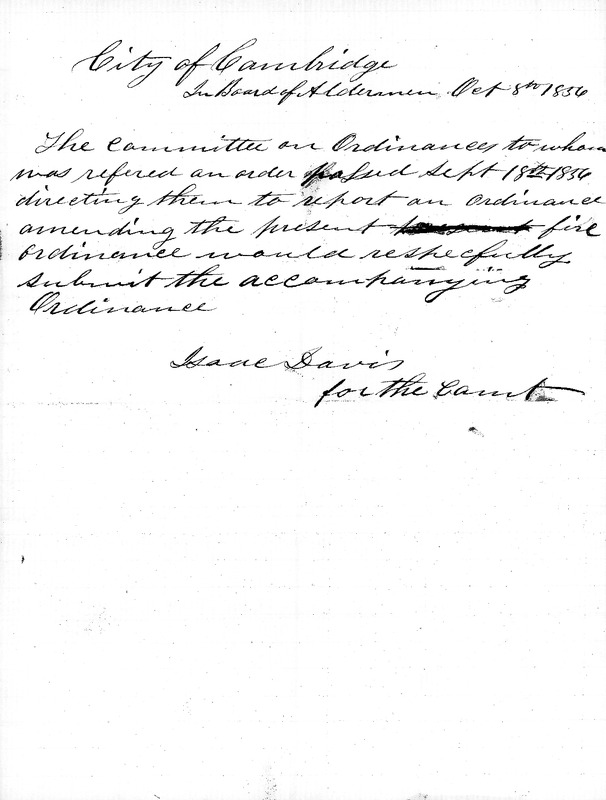 City of Cambridge
In Board of Aldermen Oct 8th 1856
The Committee on Ordinances to whom
was refered an order passed Sept 18th 1856
directing them to report an ordinance
amending the present fire
ordinance would respecfully
submit the accompanying
Ordinance
Isaac Davis
for the Comt